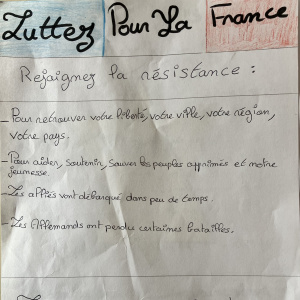 Luttez Pour La France
Rejaignez la résistance :
- Pour retrouver votre liberté, votre ville, votre région,
votre pays.
- Pour aider, soutenir, sauver les peuples opprimés et notre
jeunesse.
- Les alliés vont débarqué, dans peu de temps.
- Les Allemands ont perdu certaines batailles.